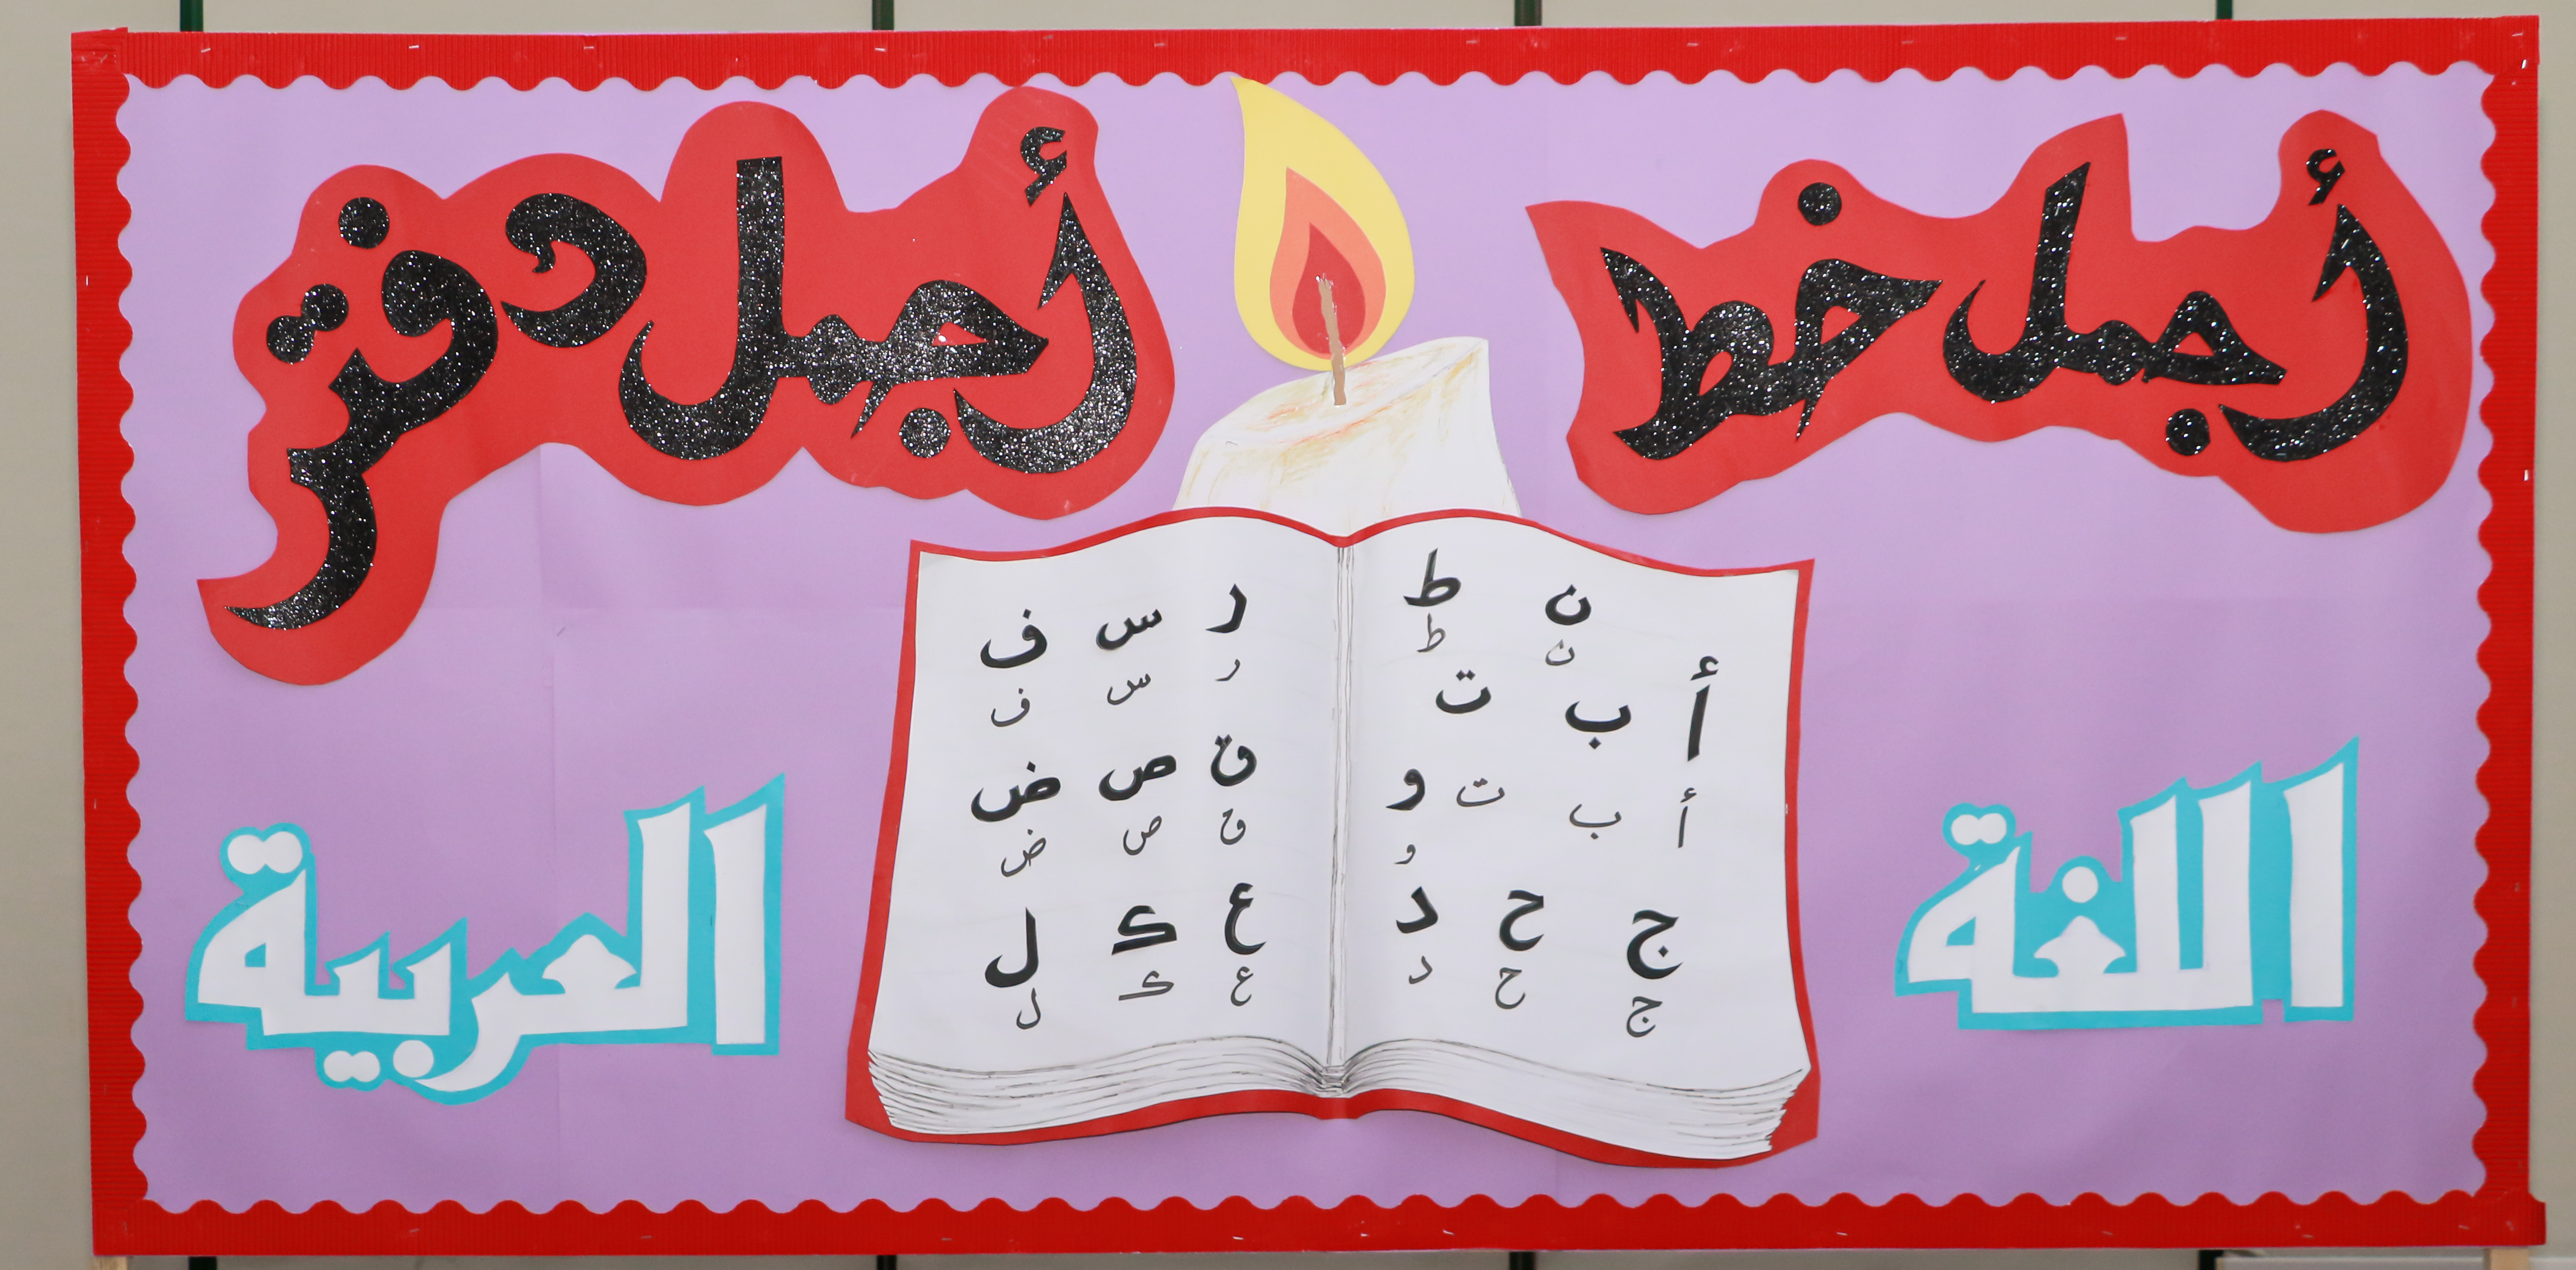 أجمل خط
أجمل دفتر
ن ط
ن ط
أ ب ت
أ ب ت و
و
ج ح د
ج ح د
ر س ف
ر س ف
ق ص ض
ق ص ض
ع ك ل
ع ك ل
اللغة
العربية